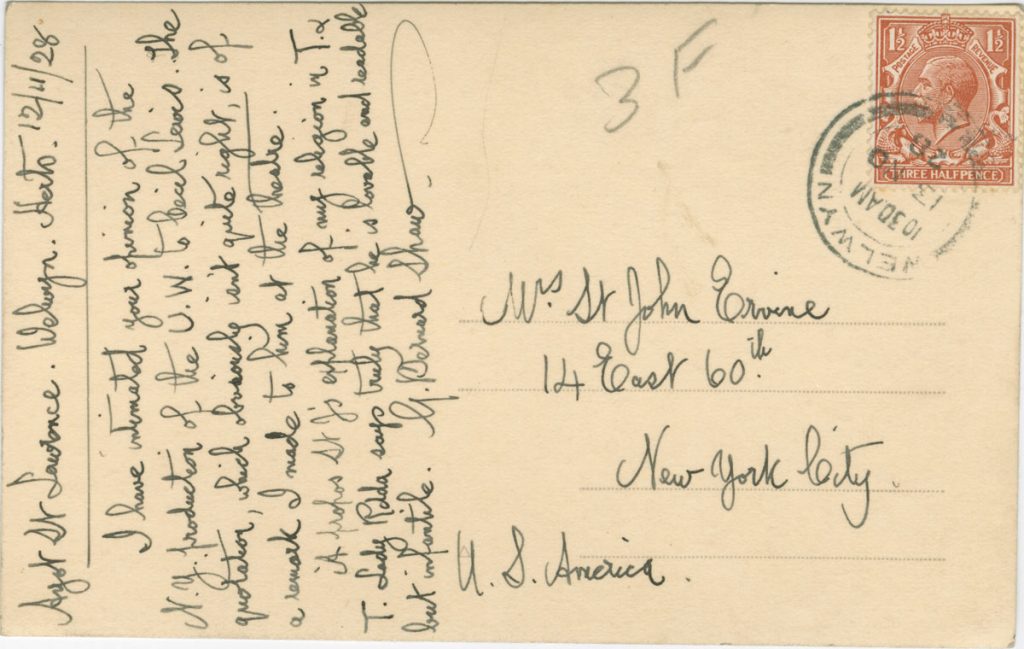 Ayot St Lawrence. Welwyn. Herts. 12/11/28
I have intimated your opinion of the
N.Y. production of the U.W. to Cecil Lewis. The
quotation, which obviously isn't quite right, is of
a remark I made to him at the theatre.
A propos St J's explanation of my religion in T. &
T. Lady Rhda says truly that he is lovable and readable
but infantile. G. Bernard Shaw
3 F
1½ 1½
POSTAGE REVENUE
THREE HALFPENCE
WELWYN
10 30 AM
13
Mrs St John Ervine
14 East 60th.
New York City.
U. S. America.